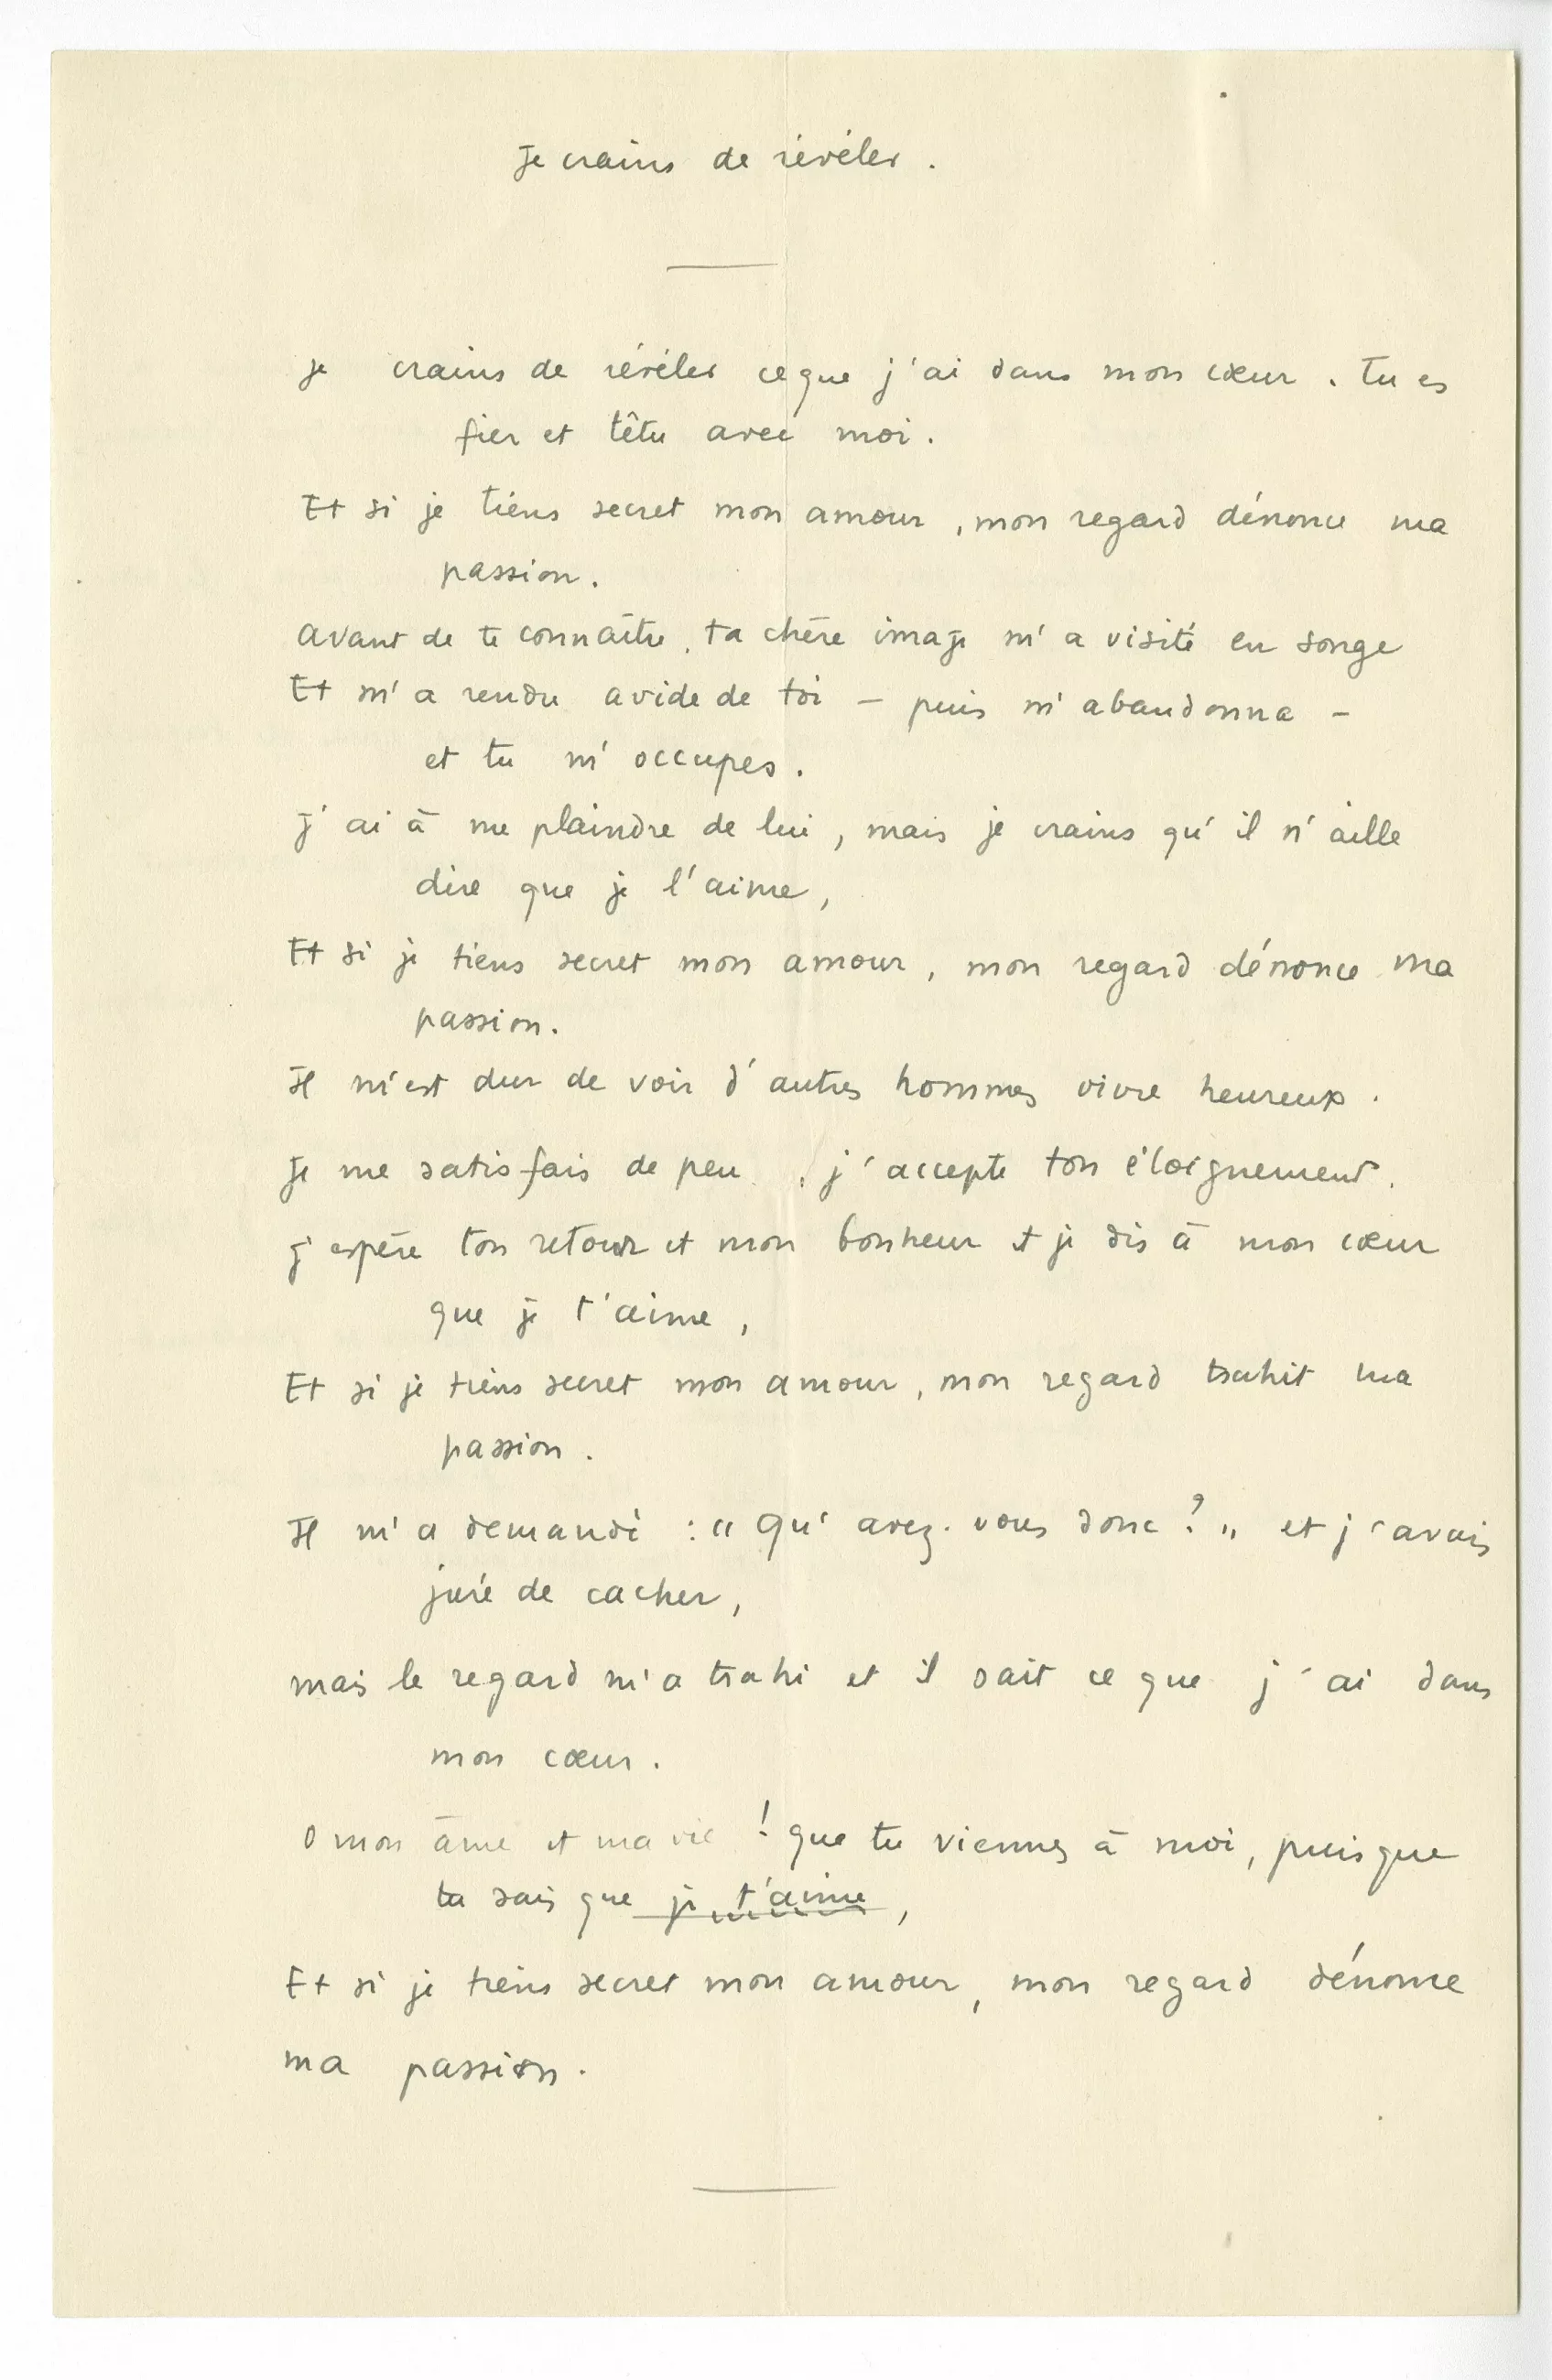 Je crains de révéler.
Je crains de révéler ce que j'ai dans mon cœur. Tu es
fier et têtu avec moi.
Et si je tiens secret mon amour, mon regard dénonce ma
passion.
Avant de te connaître, ta chère image m'a visité en songe
Et m'a rendu avide de toi - puis m'abandonna -
et tu m'occupes.
J'ai à me plaindre de lui, mais je crains qu'il n'aille
dire que je l'aime,
Et si je tiens secret mon amour, mon regard dénonce ma
passion.
Il m'est dur de voir d'autres hommes vivre heureux.
Je me satisfais de peu, j'accepte ton éloignement.
J'espère ton retour et mon bonheur et je dis à mon cœur
que je t'aime,
Et si je tiens secret mon amour, mon regard trahit ma
passion.
Il m'a demandé : "Qu'avez-vous donc ?" et j'avais
juré de cacher,
mais le regard m'a trahi et il sait ce que j'ai dans
mon cœur.
O mon âme et ma vie ! que tu viennes à moi, puisque
tu sais que je t'aime,
Et si je tiens secret mon amour, mon regard dénonce
ma passion.